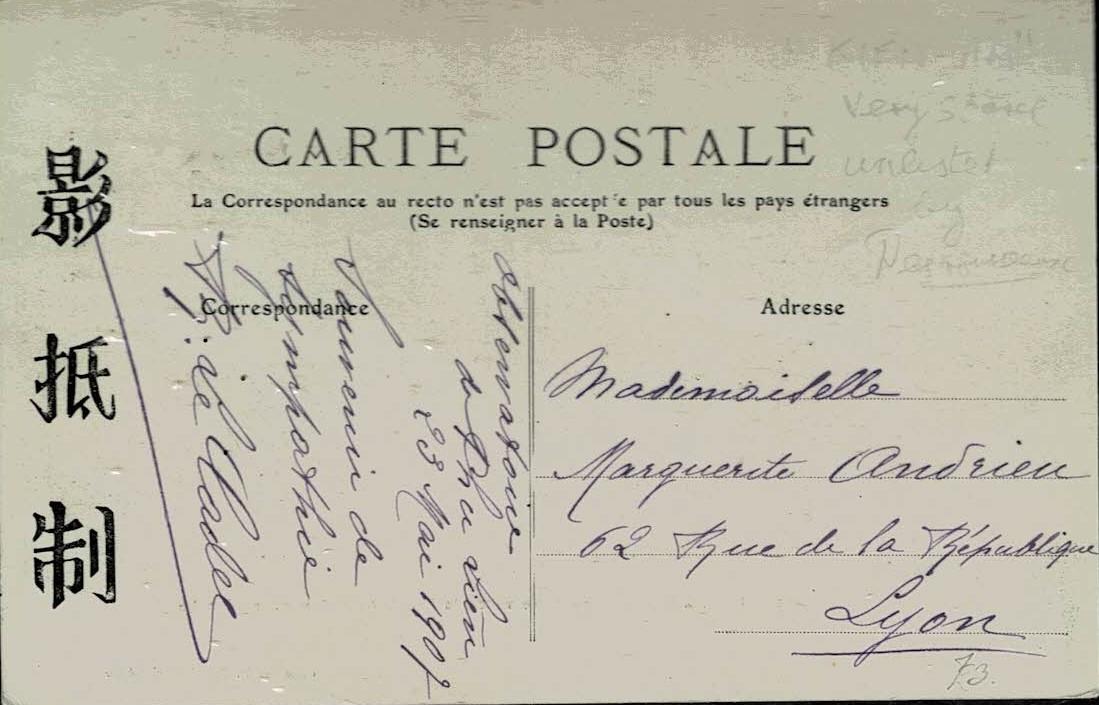 Very scarce
unlisted
by
CARTE POSTALE
La Correspondance au recto n'est pas acceptée par tous les pays étrangers
(Se renseigner à la Poste)
影
抵
制
Correspondance
Observatoire
de Phu Lien
23 Mai 1907
Souvenir de
sympathie
Adresse
Mademoiselle
Marguerite Andrieu
62 Rue de la République
Lyon
73.